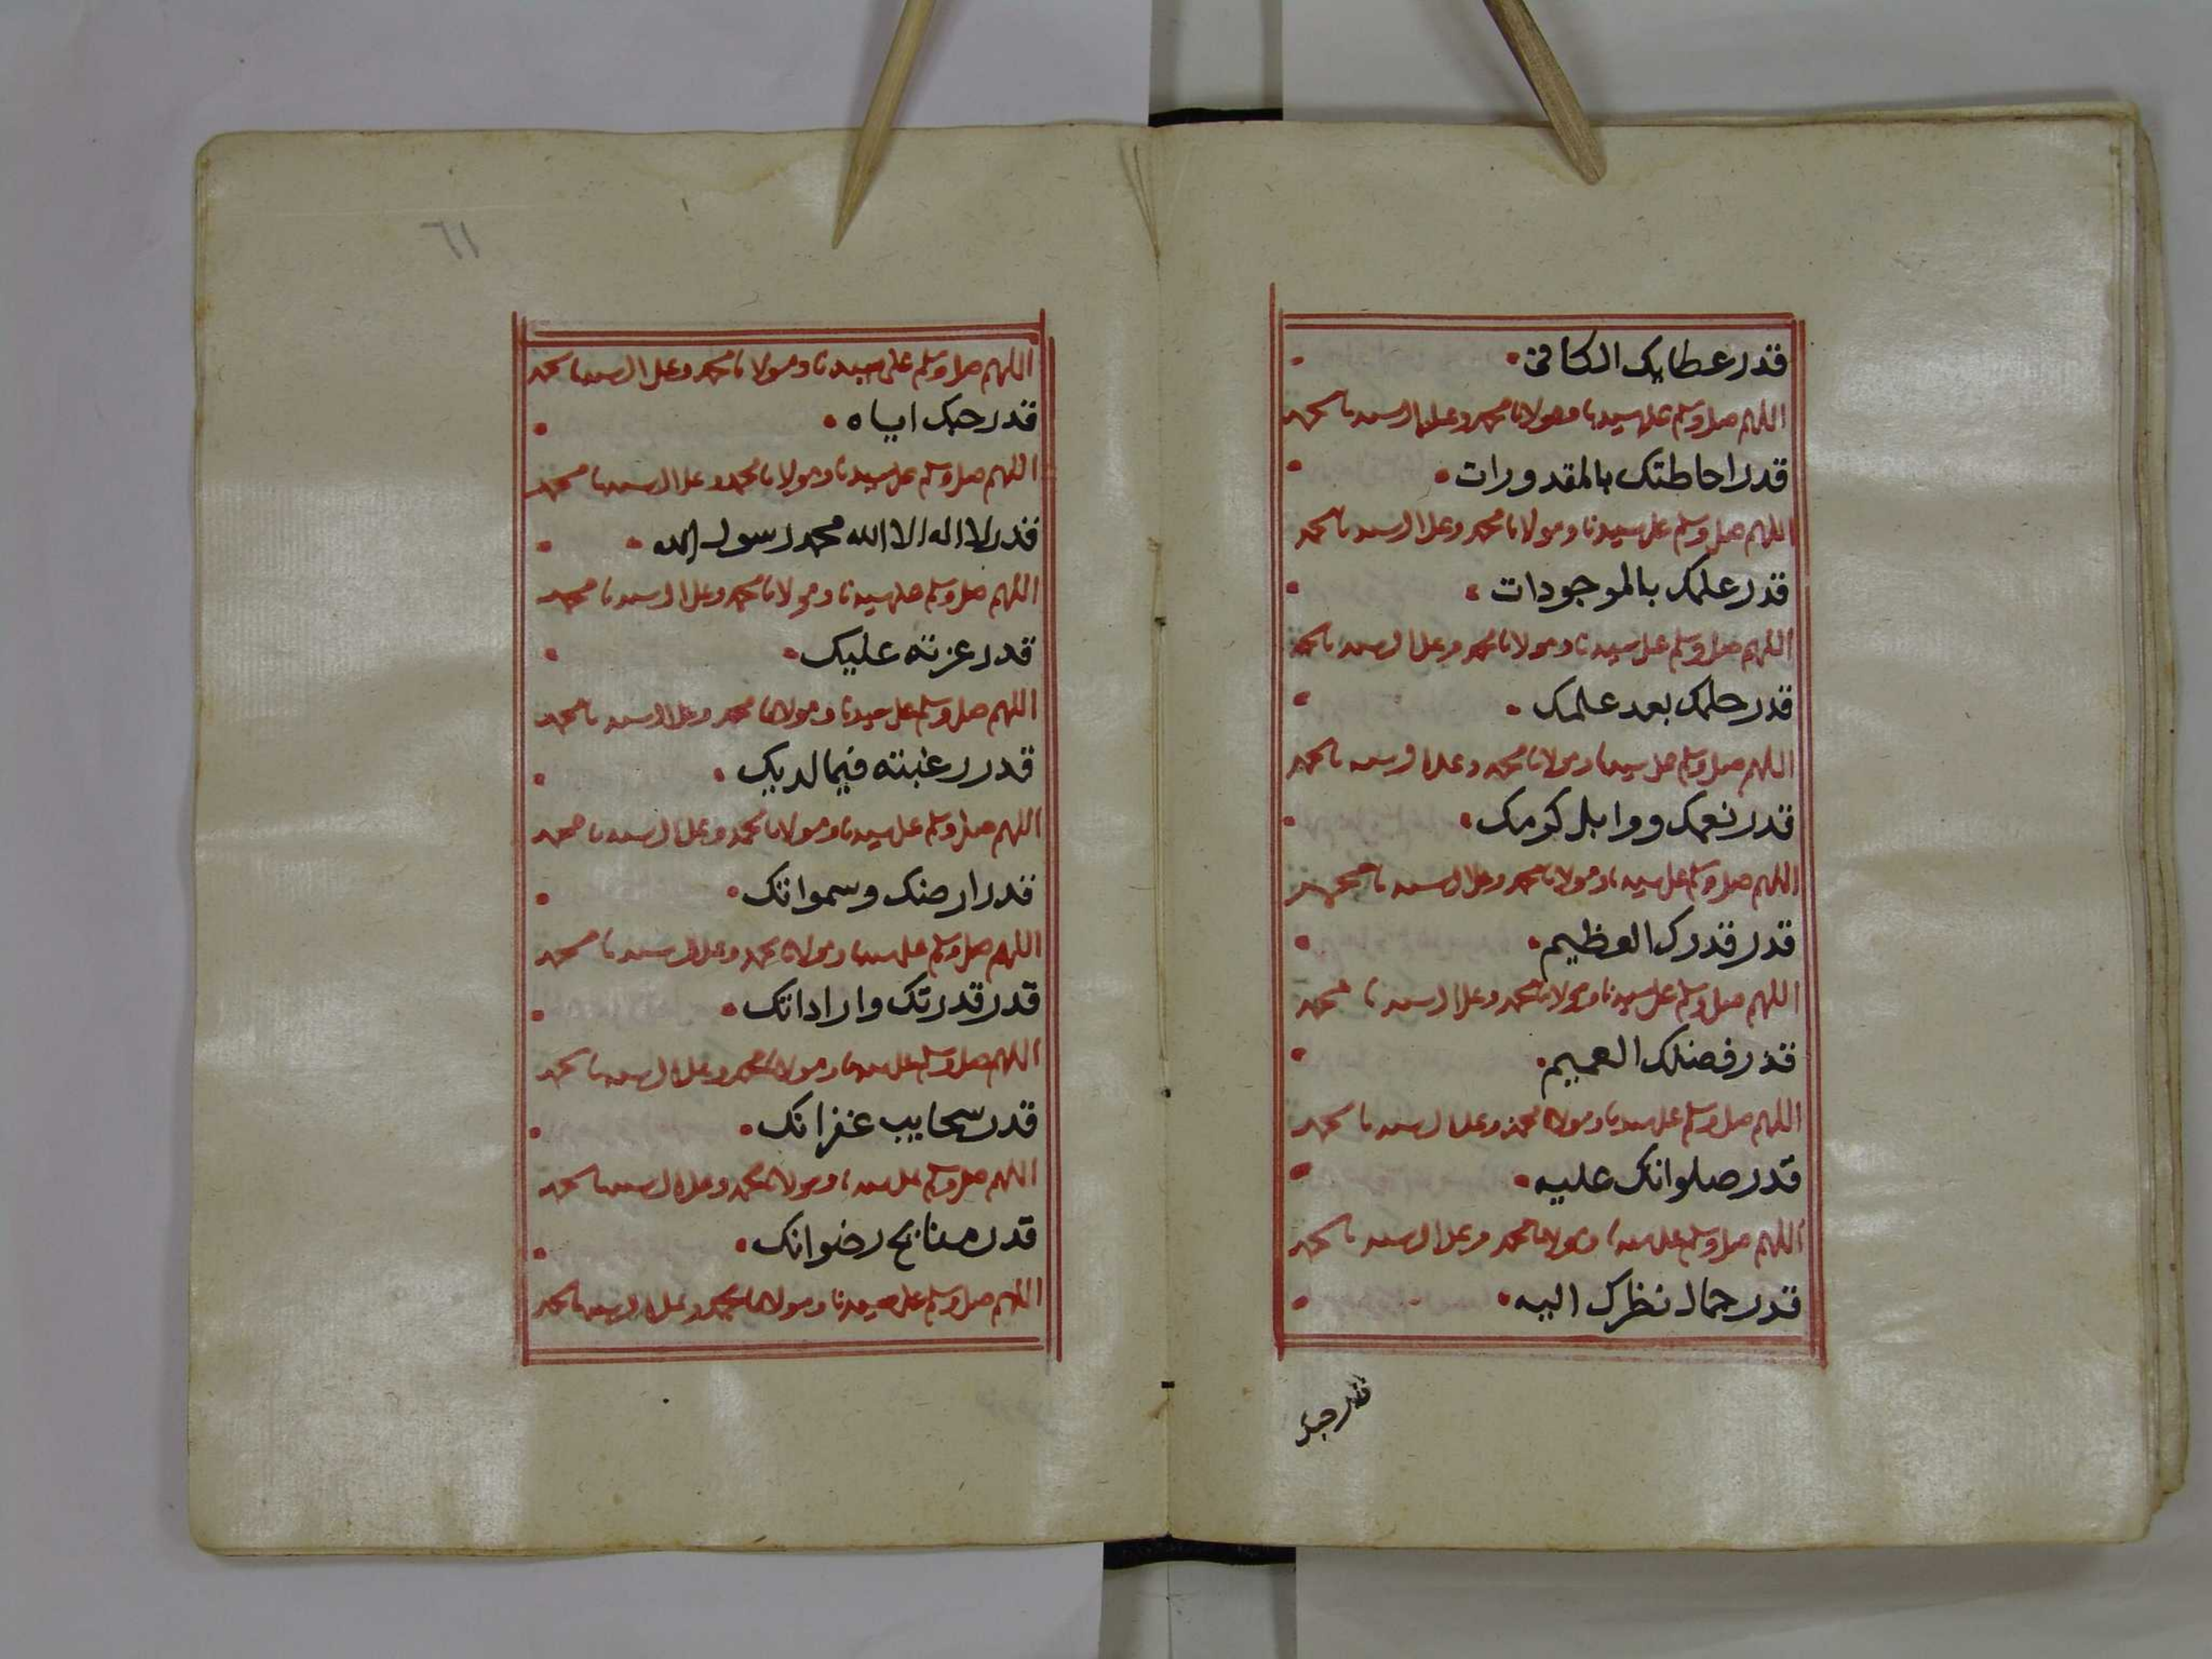 قدر عطايك الكافى
اللهم صل وسلم على سيدنا ومولانا محمد وعلى ال سيدنا محمد
قدر احاطتك بالمقدورات
اللهم صل وسلم على سيدنا ومولانا محمد وعلى ال سيدنا محمد
قدر علمك بالموجودات
اللهم صل وسلم على سيدنا ومولانا محمد وعلى ال سيدنا محمد
قدر حلمك بعد علمك
اللهم صل وسلم على سيدنا ومولانا محمد وعلى ال سيدنا محمد
قدر نعمك ووابل كرمك
اللهم صل وسلم على سيدنا ومولانا محمد وعلى ال سيدنا محمد
قدر قدرك العظيم
اللهم صل وسلم على سيدنا ومولانا محمد وعلى ال سيدنا محمد
قدر فضلك العميم
اللهم صل وسلم على سيدنا ومولانا محمد وعلى ال سيدنا محمد
قدر صلواتك عليه
اللهم صل وسلم على سيدنا ومولانا محمد وعلى ال سيدنا محمد
قدر جمال نظرك اليه
قدر حبك
٦١
اللهم صل وسلم على سيدنا ومولانا محمد وعلى ال سيدنا محمد
قدر حبك اياه
اللهم صل وسلم على سيدنا ومولانا محمد وعلى ال سيدنا محمد
قدر لا اله الا الله محمد رسول الله
اللهم صل وسلم على سيدنا ومولانا محمد وعلى ال سيدنا محمد
قدر عزته عليك
اللهم صل وسلم على سيدنا ومولانا محمد وعلى ال سيدنا محمد
قدر رغبته فيما لديك
اللهم صل وسلم على سيدنا ومولانا محمد وعلى ال سيدنا محمد
قدر ارضك وسمواتك
اللهم صل وسلم على سيدنا ومولانا محمد وعلى ال سيدنا محمد
قدر قدرتك واراداتك
اللهم صل وسلم على سيدنا ومولانا محمد وعلى ال سيدنا محمد
قدر سحايب غفرانك
اللهم صل وسلم على سيدنا ومولانا محمد وعلى ال سيدنا محمد
قدر منايح رضوانك
اللهم صل وسلم على سيدنا ومولانا محمد وعلى ال سيدنا محمد